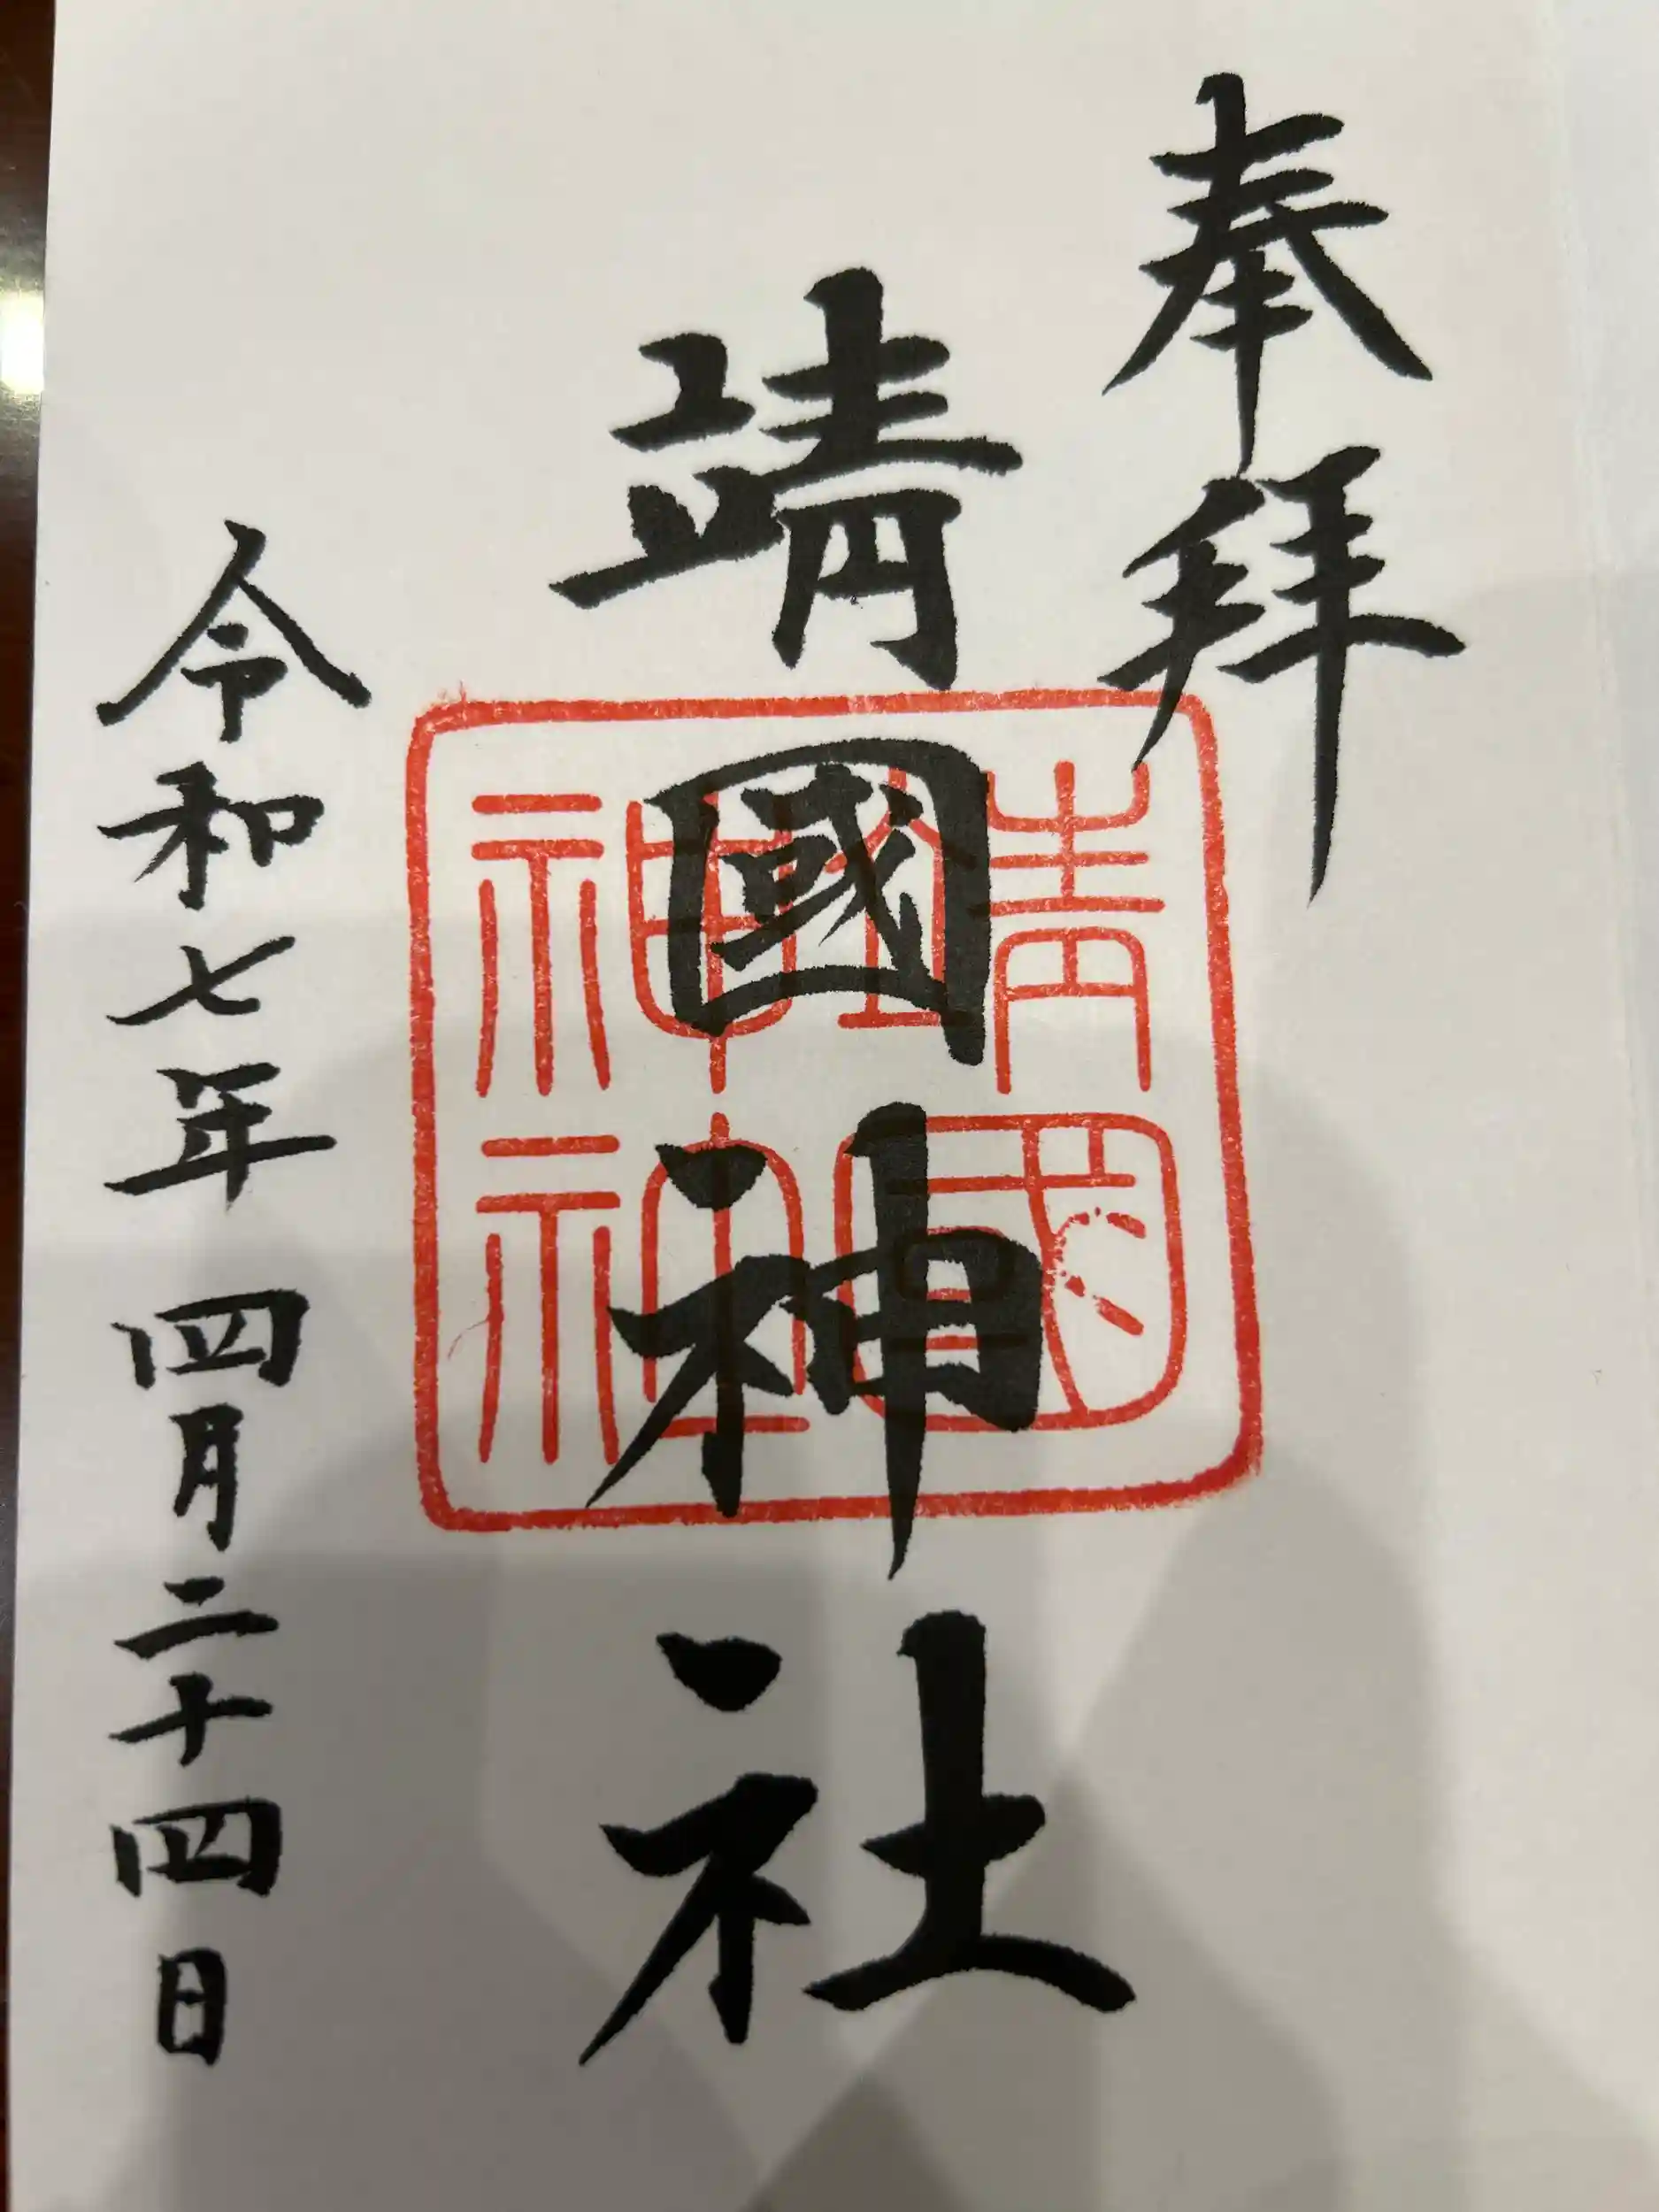 奉拜
靖國神社
靖國
神社
令和七年四月二十四日